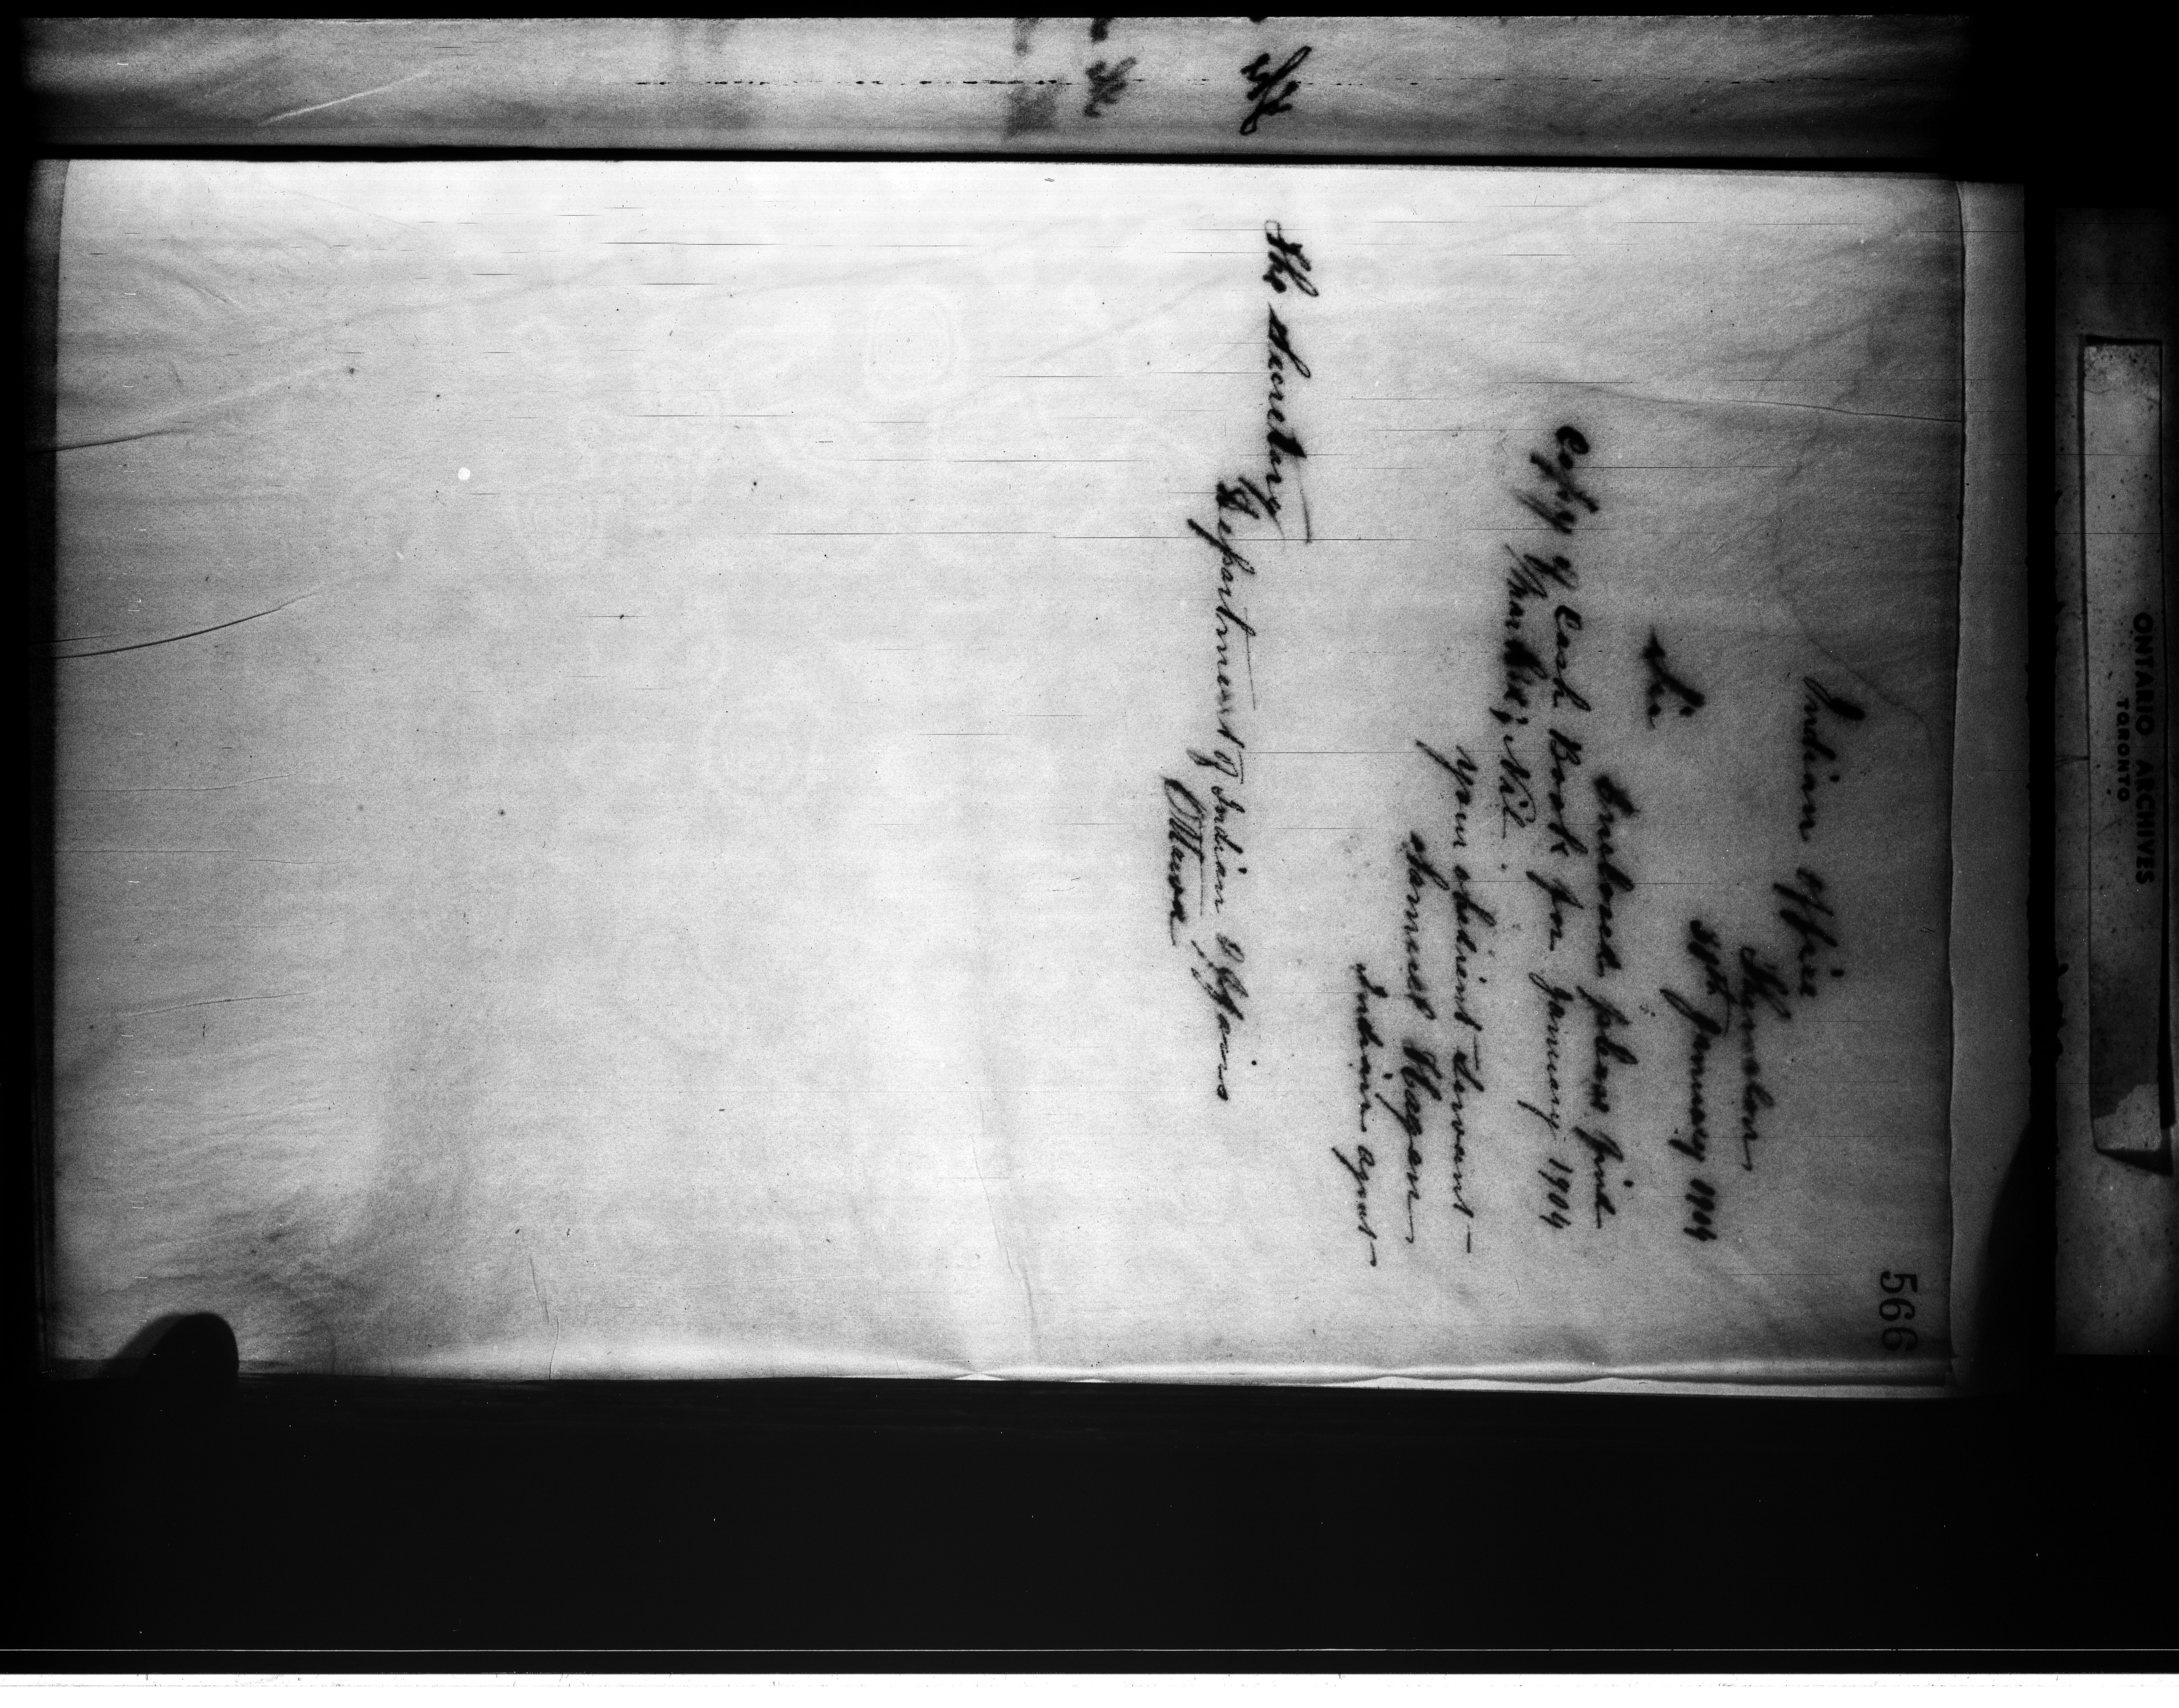 566
Indian Office
Thessalon
30th January 1904
Sir
Inclosed please find
Copy of Cash Book for January 1904
your obedient Servant
Samuel Hagan
Indian agent
The Secretary
Department of Indian Affairs
Ottawa
ONTARIO ARCHIVES
TORONTO